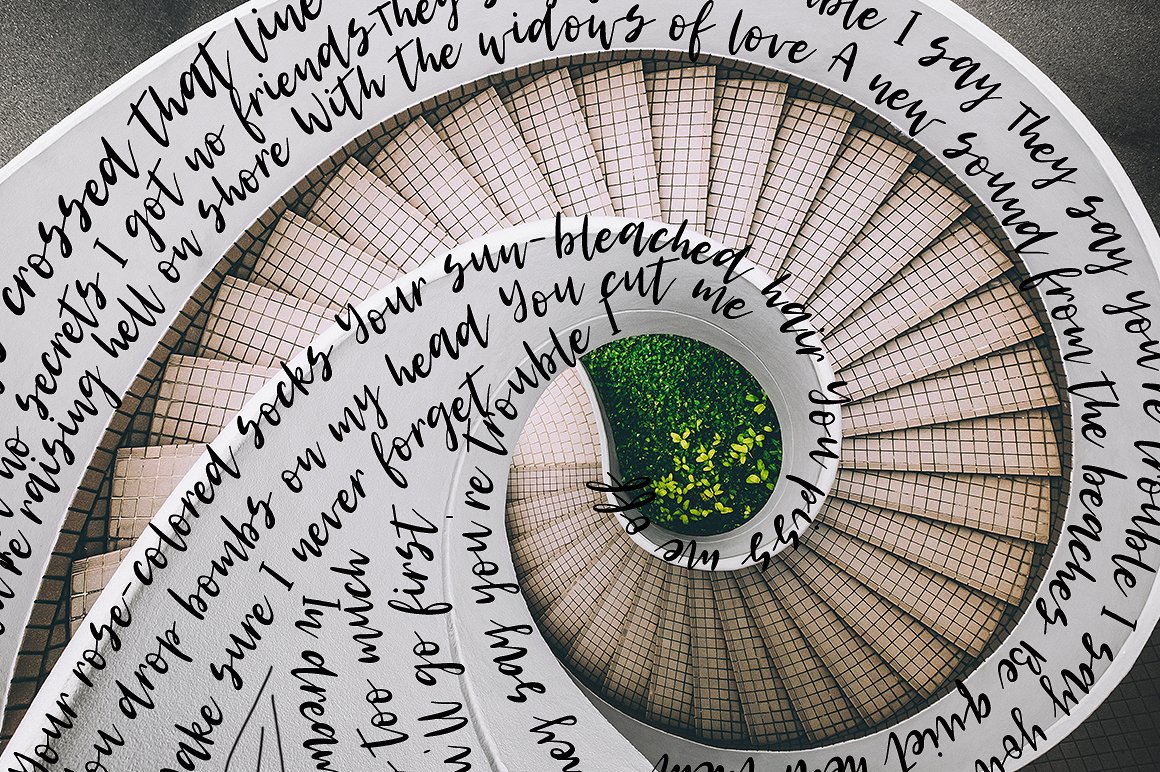 crossed that line
no secrets I got no friends They
I say They say you're trouble I say you
raising hell on shore With the widows of love A new sound from the beaches Be quiet
Your rose-colored socks Your sun-bleached hair You piss me off
You drop bombs on my head You cut me
make sure I never forget
In
too much
I'll go first
They say you're trouble I